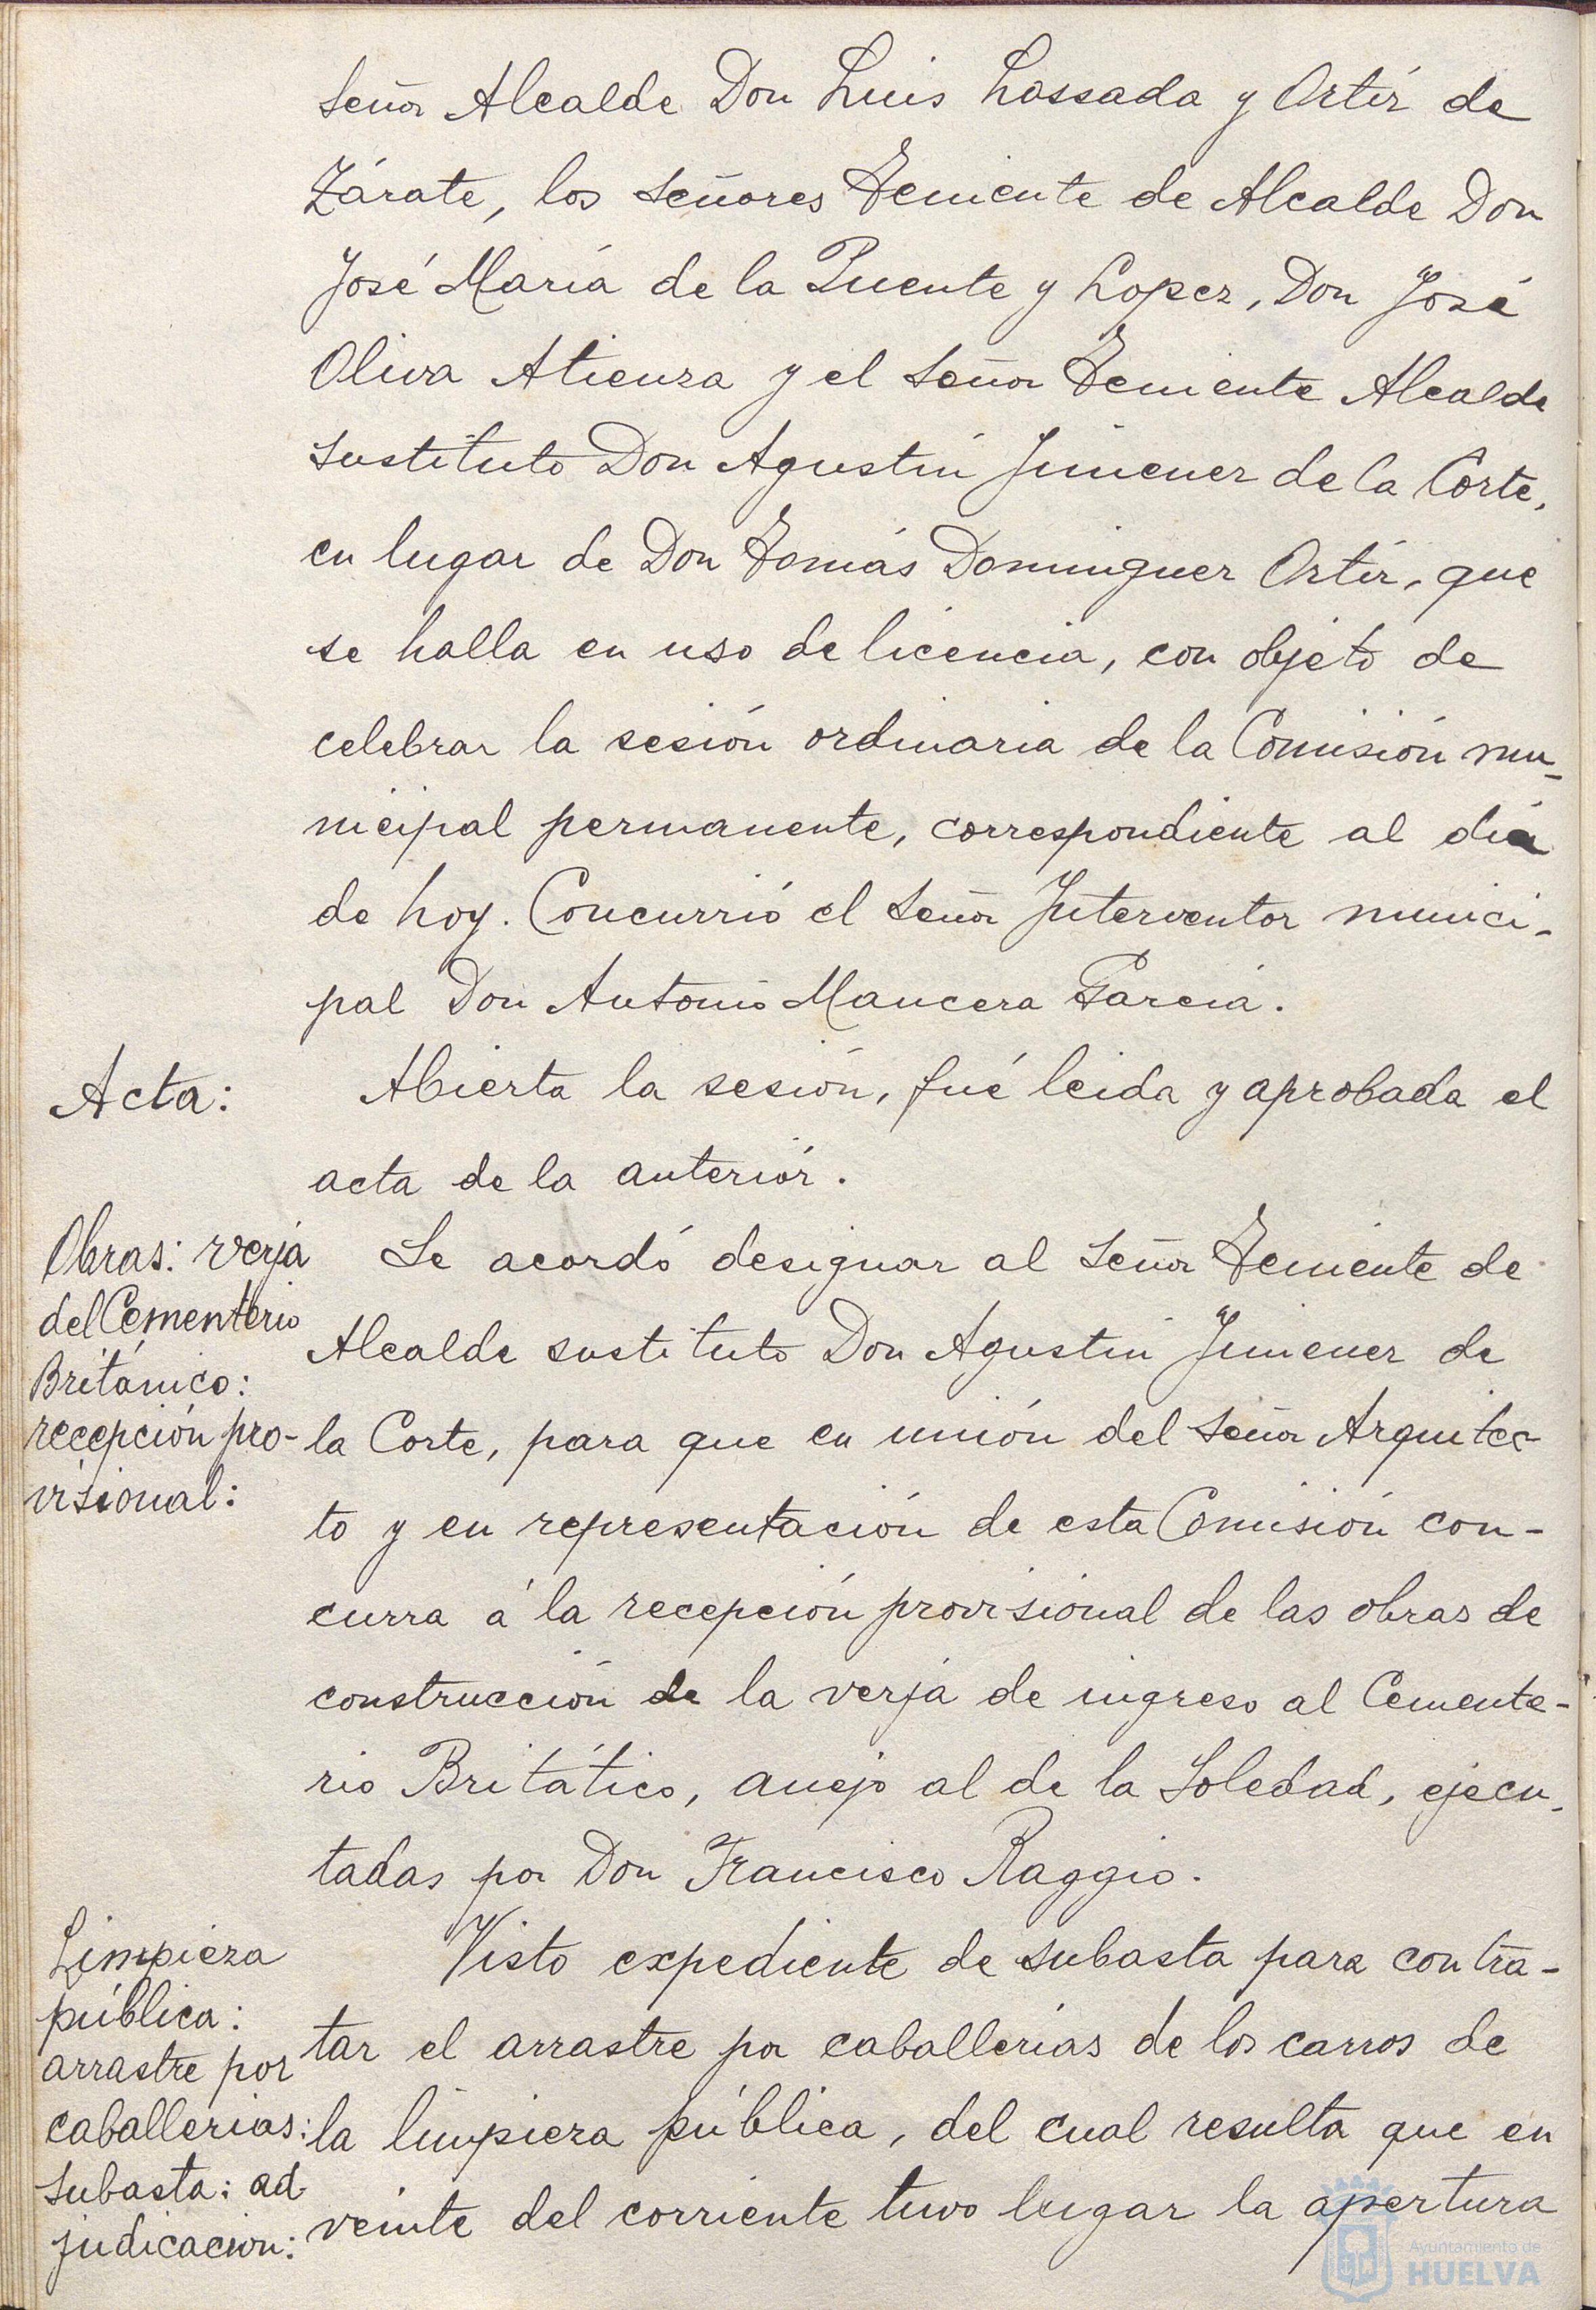 Señor Alcalde Don Luis Lossada y Ortíz de
Zárate, los Señores Teniente de Alcalde Don
José María de la Puente y Lopez, Don José
Oliva Atienza y el Señor Teniente Alcalde
sustituto Don Agustín Jimenez de la Corte,
en lugar de Don Tomás Dominguez Ortíz, que
se halla en uso de licencia, con objeto de
celebrar la sesión ordinaria de la Comisión mu-
nicipal permanente, correspondiente al día
de hoy. Concurrió el Señor Interventor munici-
pal Don Antonio Mancera García.
Acta:
Abierta la sesión, fué leida y aprobada el
acta de la anteriór.
Obras: verja
del Cementerio
Británico:
recepción pro-
visional:
Se acordó designar al Señor Teniente de
Alcalde sustituto Don Agustín Jimenez de
la Corte, para que en unión del Señor Arquitec-
to y en representación de esta Comisión con-
curra á la recepción provisional de las obras de
construcción de la verja de ingreso al Cemente-
rio Britático, anejo al de la Soledad, ejecu-
tadas por Don Francisco Raggio.
Limpieza
pública:
arrastre por
caballerias:
subasta: ad-
judicacion:
Visto expediente de subasta para contra-
tar el arrastre por caballerías de los carros de
la limpieza pública, del cual resulta que en
veinte del corriente tuvo lugar la apertura
Ayuntamiento de
HUELVA